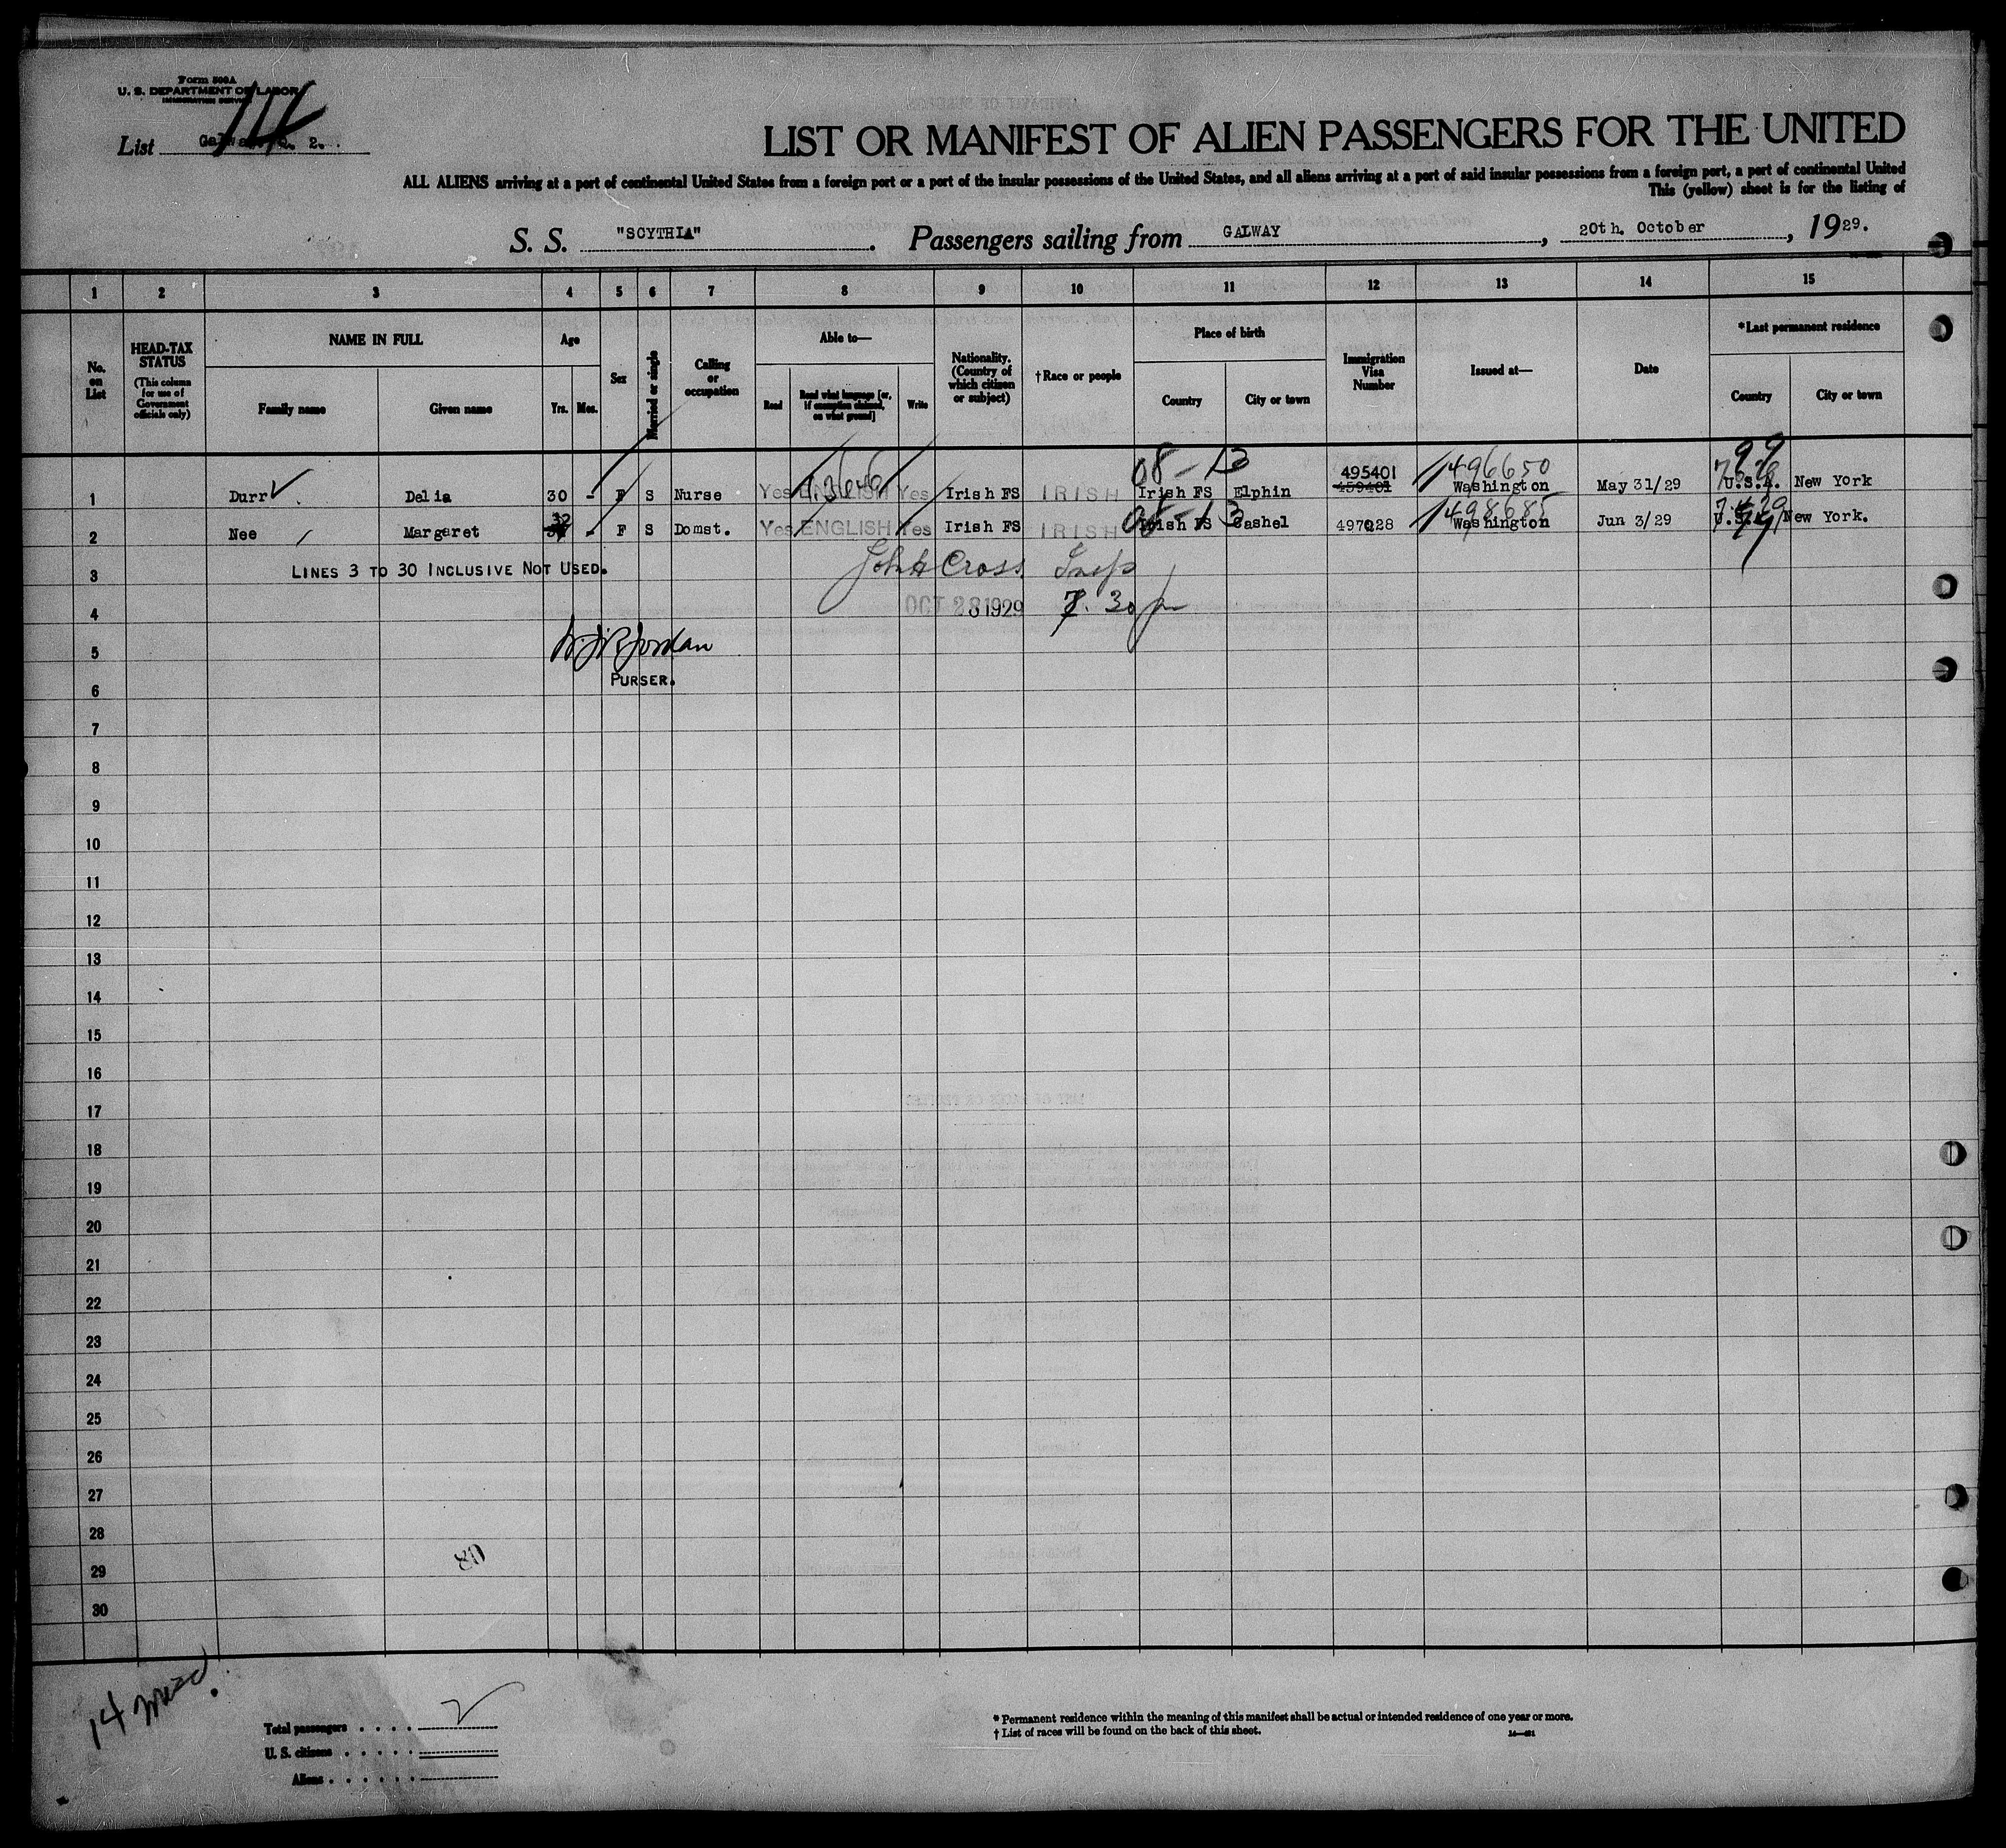 Form 500A
U. S. DEPARTMENT OF LABOR
IMMIGRATION SERVICE
List 2.
LIST OR MANIFEST OF ALIEN PASSENGERS FOR THE UNITED
ALL ALIENS arriving at a port of continental United States from a foreign port or a port of the insular possessions of the United States, and all aliens arriving at a port of said insular possessions from a foreign port, a port of continental United
This (yellow) sheet is for the listing of
S. S. "SCYTHIA". Passengers sailing from GALWAY, 20th. October, 1929.
1 2 3 4 5 6 7 8 9 10 11 12 13 14 15
No. on List
HEAD-TAX STATUS (This column for use of Government officials only)
NAME IN FULL
Family name Given name
Age
Yrs. Mos.
Sex
Married or single
Calling or occupation
Able to—
Read Read what language [or, if exemption claimed, on what ground] Write
Nationality. (Country of which citizen or subject)
†Race or people
Place of birth
Country City or town
Immigration Visa Number
Issued at—
Date
*Last permanent residence
Country City or town
08-13 495401 1496650 99
1 Durr Delia 30 - F S Nurse Yes ENGLISH Yes Irish FS IRISH Irish FS Elphin 459401 Washington May 31/29 U.S.A. New York
32 08-13 1498685
2 Nee Margaret - F S Domst. Yes ENGLISH Yes Irish FS IRISH Irish FS Cashel 497028 Washington Jun 3/29 U.S.A. New York.
3 LINES 3 TO 30 INCLUSIVE NOT USED. Cross Insp
4 OCT 28 1929 7.30 p
5 Jordan
6 PURSER.
7
8
9
10
11
12
13
14
15
16
17
18
19
20
21
22
23
24
25
26
27
28
29
30
80
14
Total passengers . . . . 2
U. S. citizens . . . . .
Aliens . . . . . .
* Permanent residence within the meaning of this manifest shall be actual or intended residence of one year or more.
† List of races will be found on the back of this sheet.